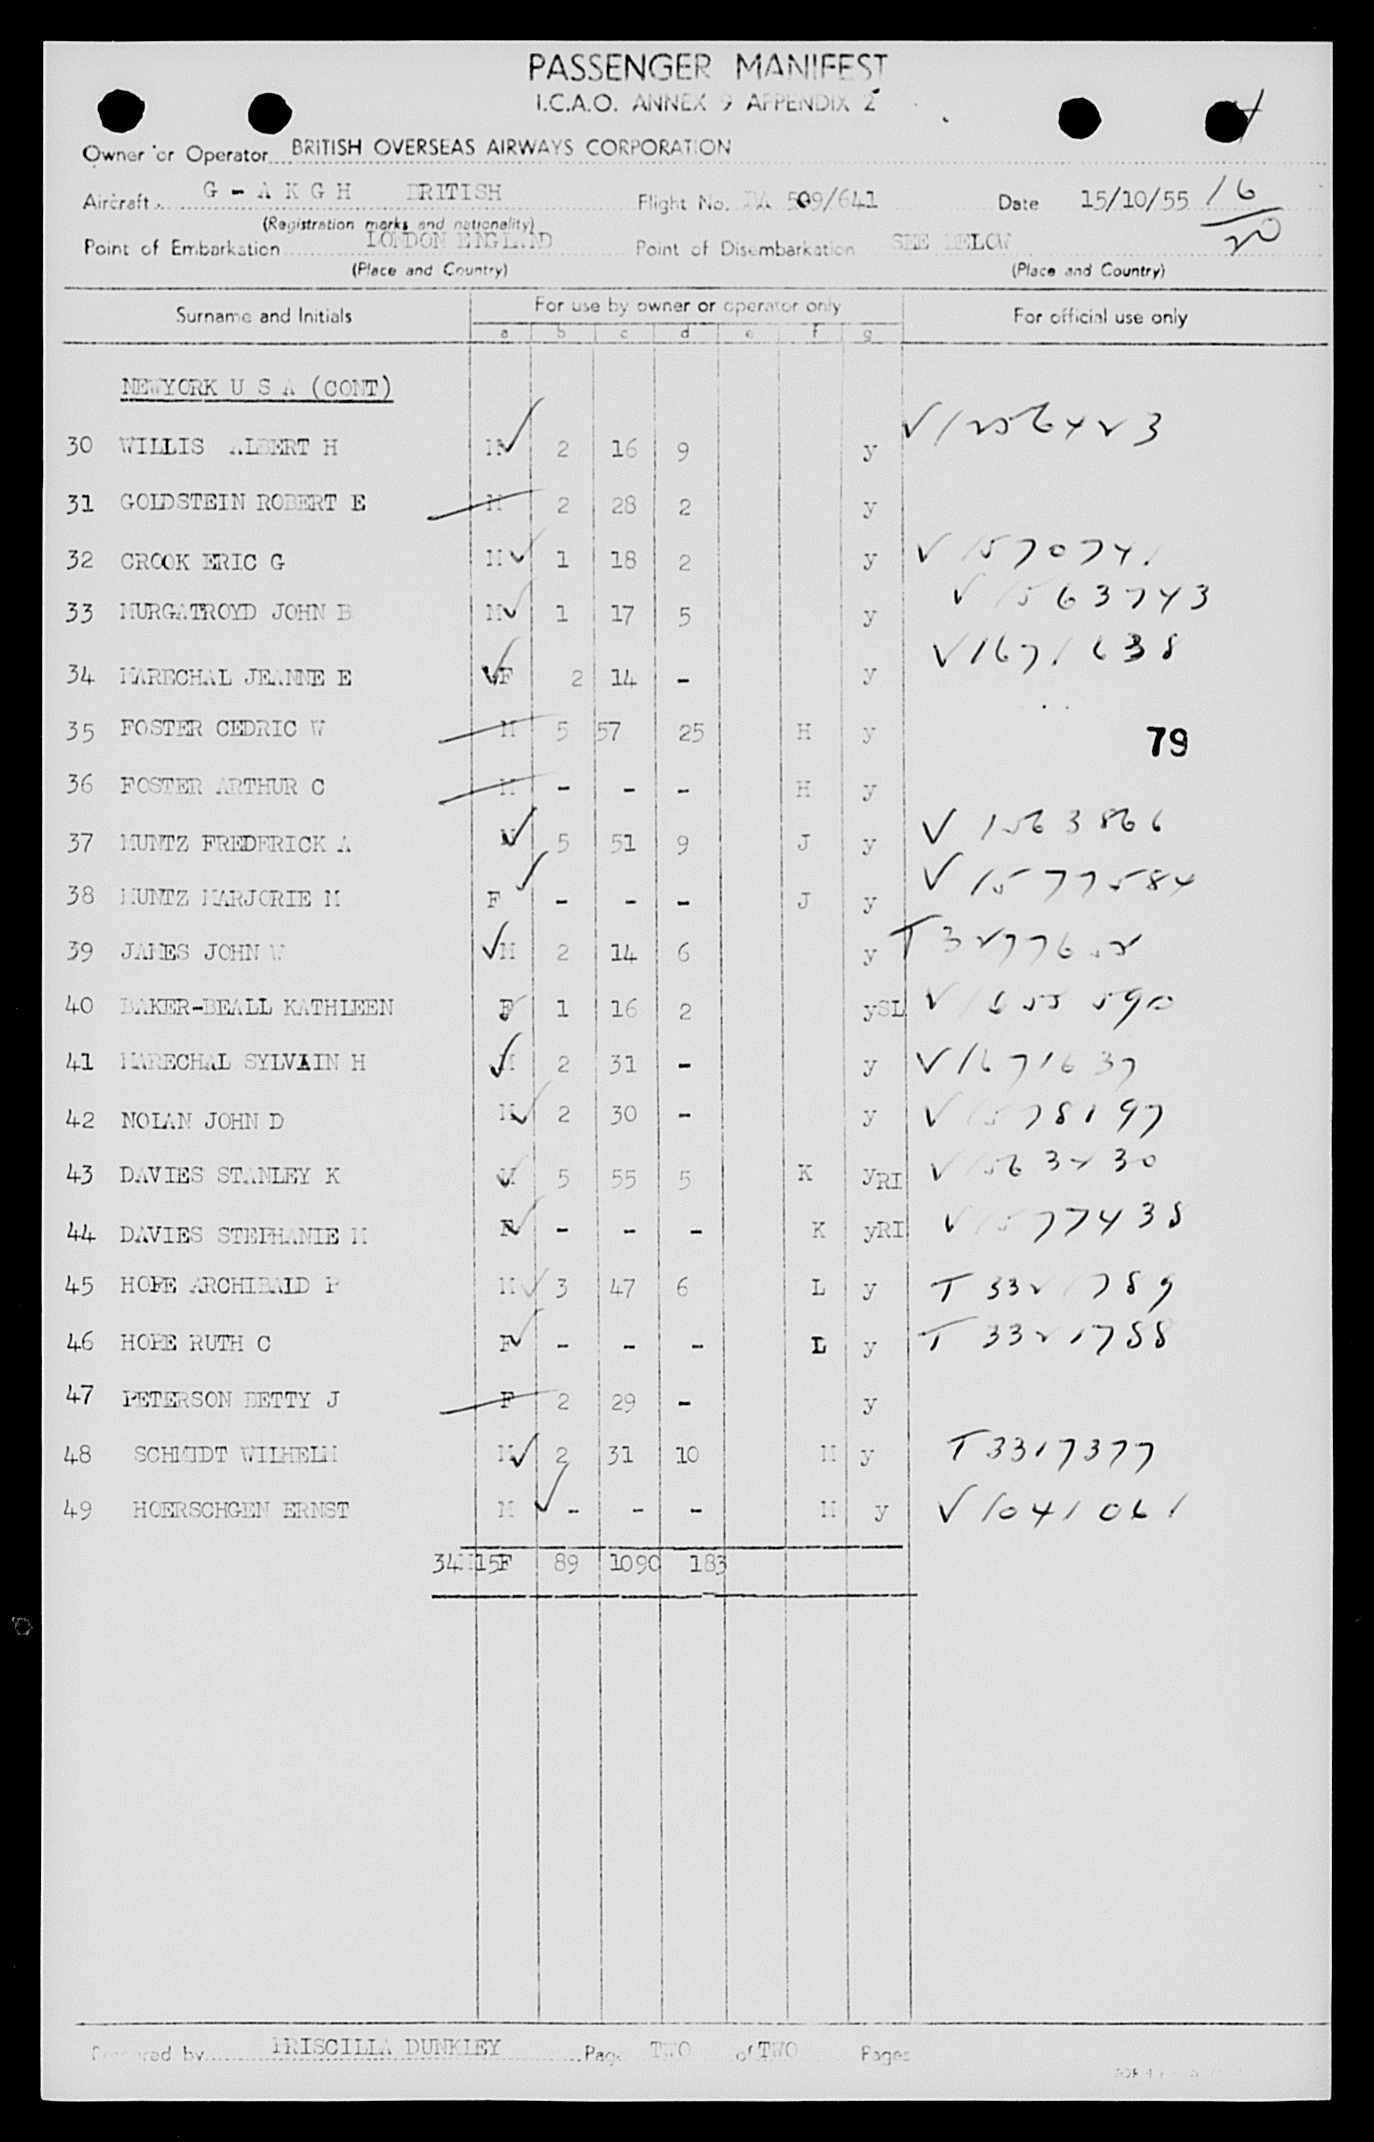 PASSENGER MANIFEST
I.C.A.O. ANNEX 9 APPENDIX 2
Owner or Operator BRITISH OVERSEAS AIRWAYS CORPORATION
Aircraft G - A K G H BRITISH Flight No. BA 509/641 Date 15/10/55 16/20
(Registration marks and nationality)
Point of Embarkation LONDON ENGLAND Point of Disembarkation SEE BELOW
(Place and Country) (Place and Country)
Surname and Initials For use by owner or operator only For official use only
a b c d e f g
NEWYORK U S A (CONT)
30 WILLIS ALBERT H M 2 16 9 y V1256423
31 GOLDSTEIN ROBERT E M 2 28 2 y
32 CROOK ERIC G M 1 18 2 y V1570741
33 MURGATROYD JOHN B M 1 17 5 y V1563743
34 MARECHAL JEANNE E F 2 14 - y V1671638
35 FOSTER CEDRIC W M 5 57 25 H y
79
36 FOSTER ARTHUR C M - - - H y
37 MUNTZ FREDERICK A M 5 51 9 J y V 1563866
38 MUNTZ MARJORIE M F - - - J y V 1577584
39 JAMES JOHN W M 2 14 6 y
40 BAKER-BEALL KATHLEEN F 1 16 2 ySL V 1655590
41 MARECHAL SYLVAIN H M 2 31 - y V1671637
42 NOLAN JOHN D M 2 30 - y V 1578197
43 DAVIES STANLEY K M 5 55 5 K yRI V 1563430
44 DAVIES STEPHANIE M F - - - K yRI V 1577438
45 HOPE ARCHIBALD P M 3 47 6 L y T 3321789
46 HOPE RUTH C F - - - L y T 3321788
47 PETERSON BETTY J F 2 29 - y
48 SCHMIDT WILHELM M 2 31 10 M y T3317377
49 HOERSCHGEN ERNST M - - - M y V1041061
34M15F 89 1090 183
Prepared by PRISCILLA DUNKLEY Page TWO of TWO Pages